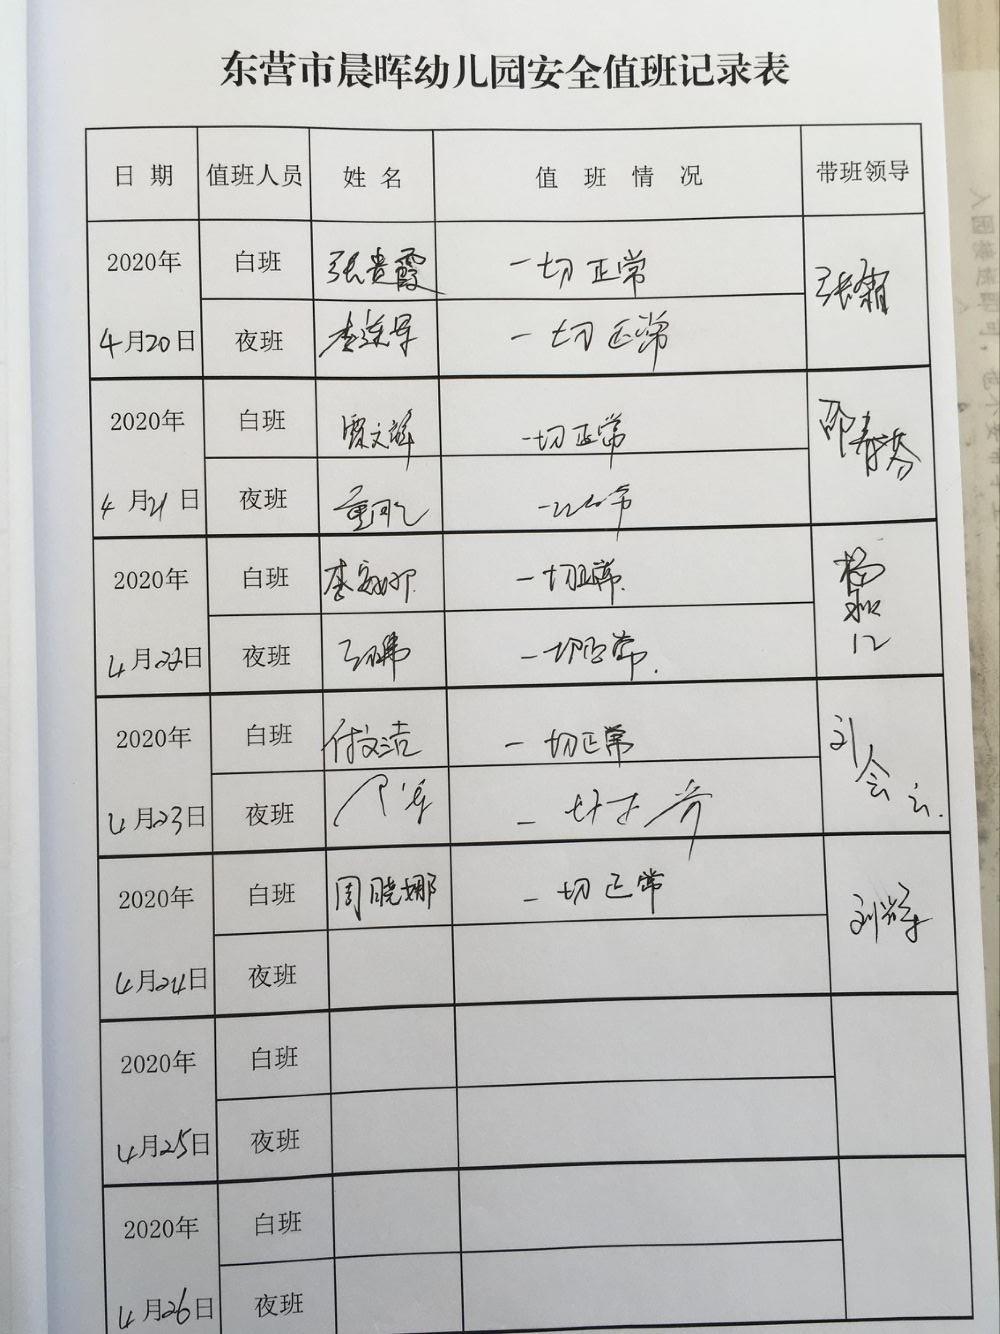 东营市晨晖幼儿园安全值班记录表
日期 值班人员 姓名 值班情况 带班领导
2020年 白班 张贵霞 一切正常 张霜
4月20日 夜班 李连军 一切正常
2020年 白班 贾文辉 一切正常 邵春芬
4月21日 夜班 一切正常
2020年 白班 李 一切正常 杨
4月22日 夜班 一切正常
2020年 白班 付文洁 一切正常 刘会云
4月23日 夜班 一切正常
2020年 白班 周晓娜 一切正常 刘
4月24日 夜班
2020年 白班
4月25日 夜班
2020年 白班
4月26日 夜班